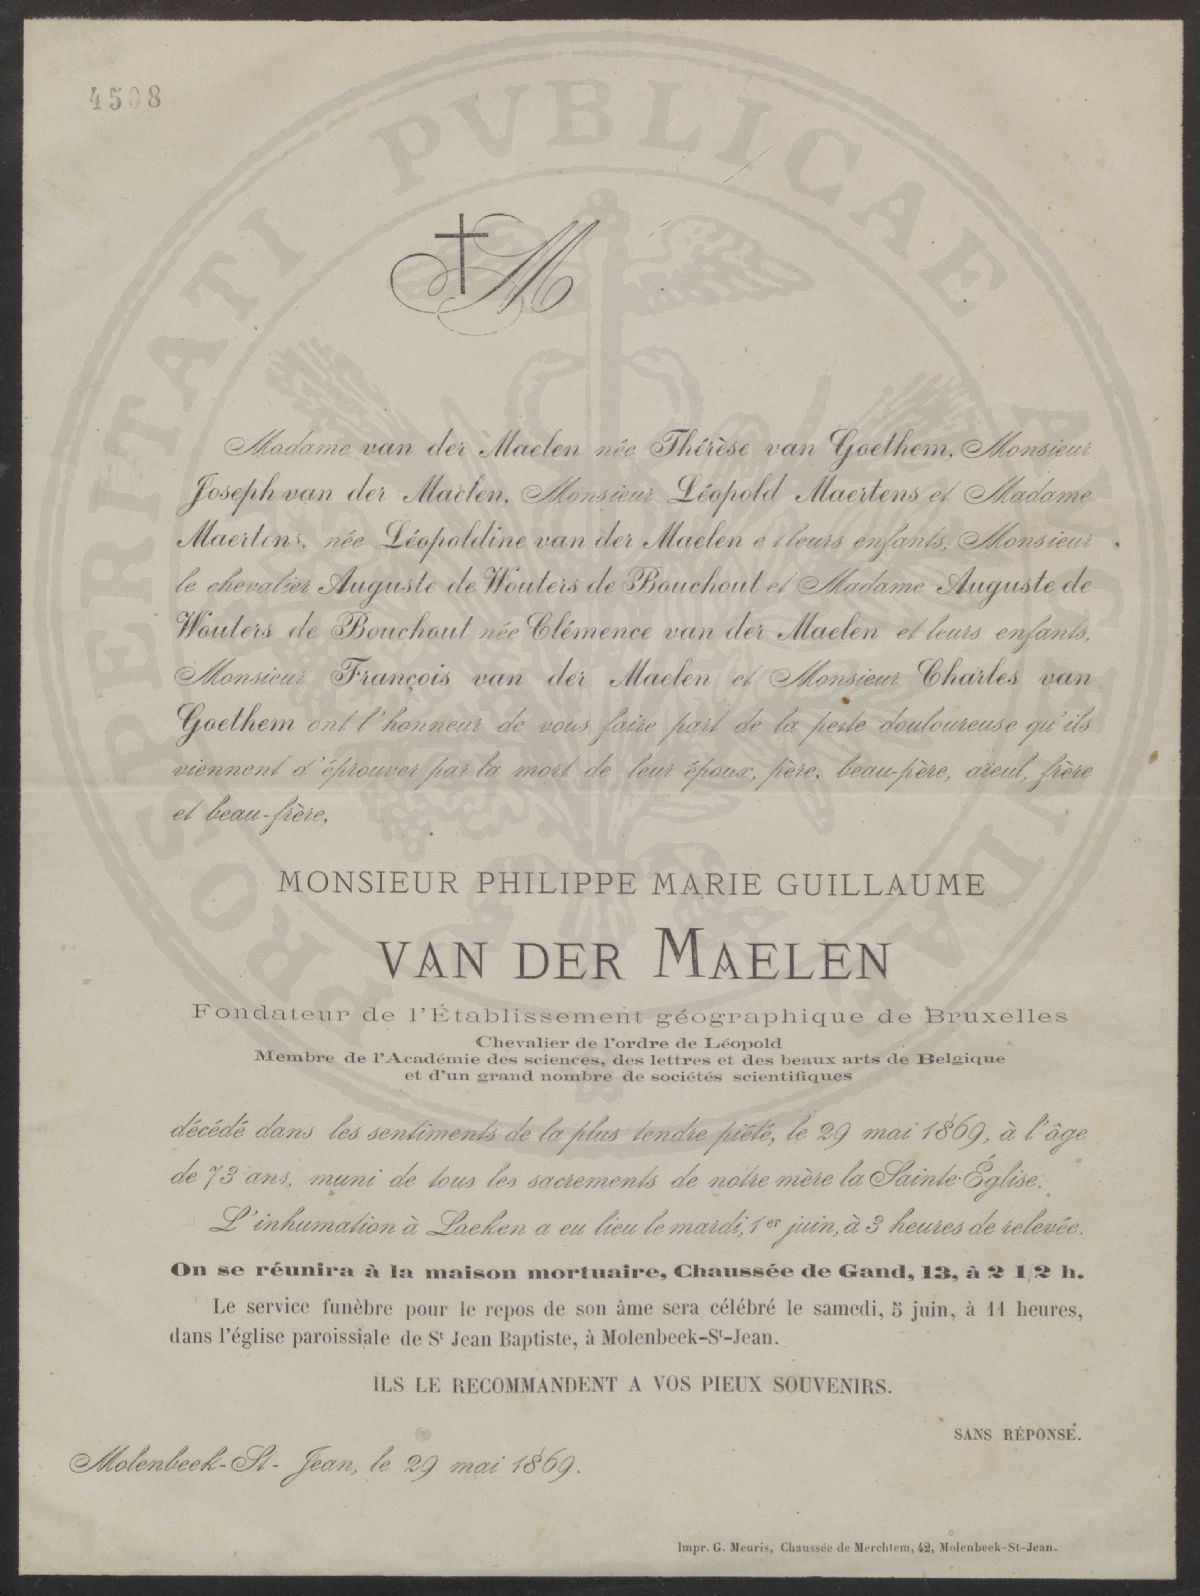 4508
PROSPERITATI PVBLICAE
M
Madame van der Maelen née Thérèse van Goethem, Monsieur
Joseph van der Maelen, Monsieur Léopold Maertens et Madame
Maertens, née Léopoldine van der Maelen et leurs enfants, Monsieur
le chevalier Auguste de Wouters de Bouchout et Madame Auguste de
Wouters de Bouchout née Clémence van der Maelen et leurs enfants,
Monsieur François van der Maelen et Monsieur Charles van
Goethem ont l'honneur de vous faire part de la perte douloureuse qu'ils
viennent d'éprouver par la mort de leur époux, père, beau-père, aïeul, frère
et beau-frère,
MONSIEUR PHILIPPE MARIE GUILLAUME
VAN DER MAELEN
Fondateur de l'Établissement géographique de Bruxelles
Chevalier de l'ordre de Léopold
Membre de l'Académie des sciences, des lettres et des beaux arts de Belgique
et d'un grand nombre de sociétés scientifiques
décédé dans les sentiments de la plus tendre piété, le 29 mai 1869, à l'âge
de 73 ans, muni de tous les sacrements de notre mère la Sainte-Église.
L'inhumation à Laeken a eu lieu le mardi, 1er juin, à 3 heures de relevée.
On se réunira à la maison mortuaire, Chaussée de Gand, 13, à 2 1/2 h.
Le service funèbre pour le repos de son âme sera célébré le samedi, 5 juin, à 11 heures,
dans l'église paroissiale de St Jean Baptiste, à Molenbeek-St-Jean.
ILS LE RECOMMANDENT A VOS PIEUX SOUVENIRS.
SANS RÉPONSE.
Molenbeek-St-Jean, le 29 mai 1869.
Impr. G. Meuris, Chaussée de Merchtem, 42, Molenbeek-St-Jean.